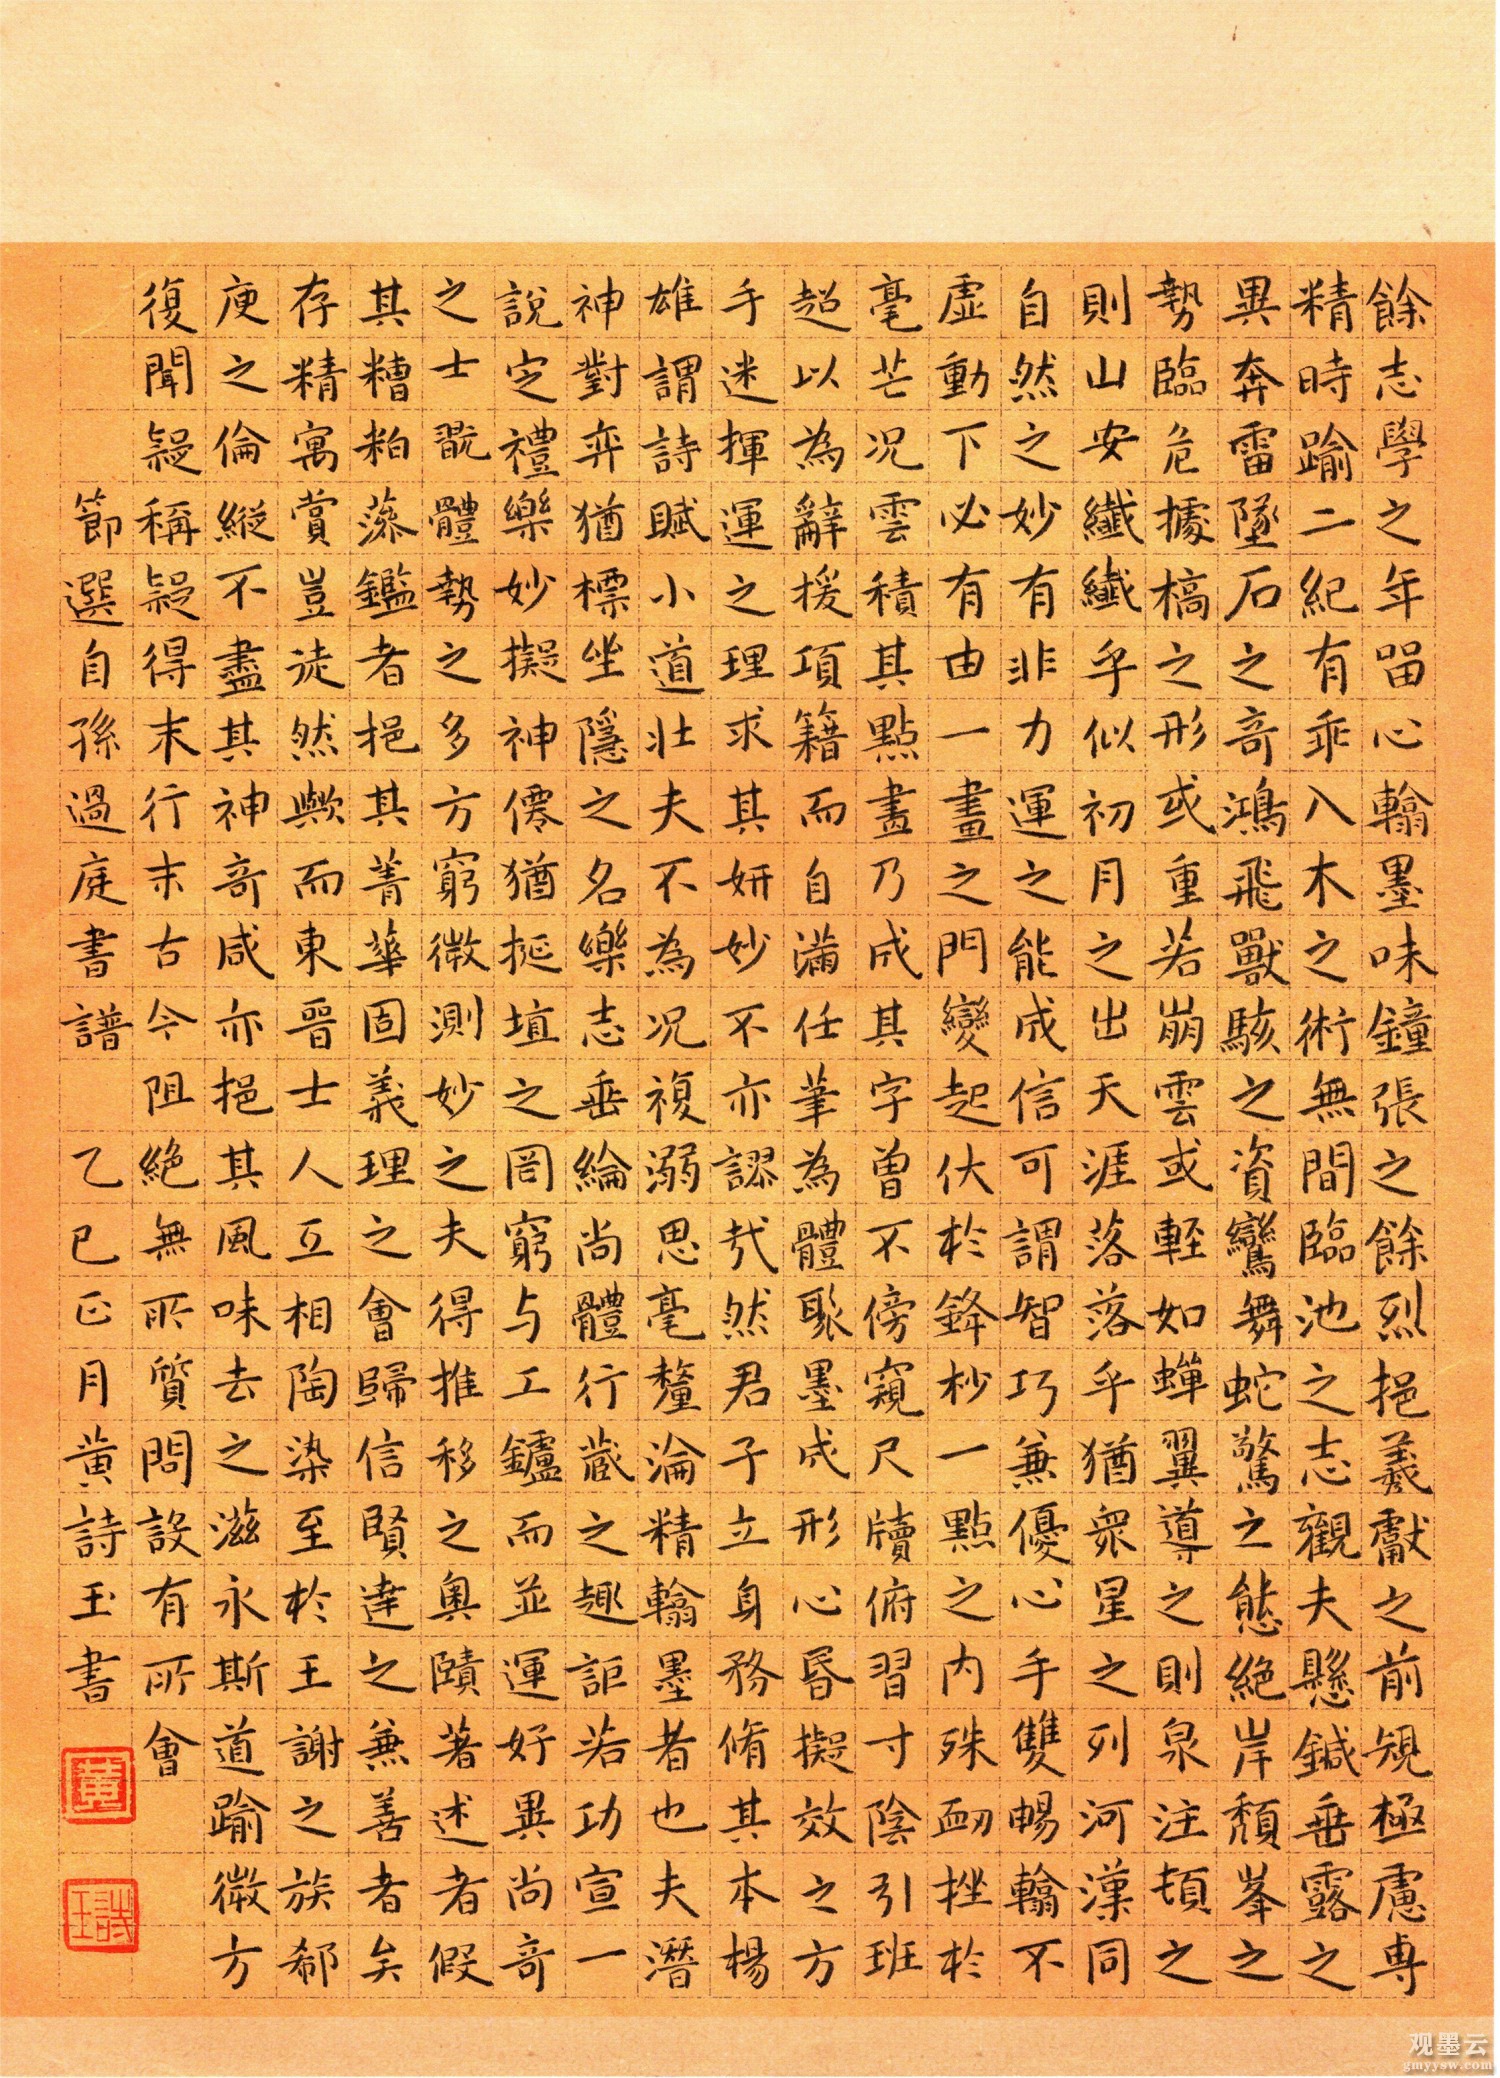 餘志學之年留心翰墨味鐘張之餘烈挹羲獻之前規極慮專
精時踰二紀有乖入木之術無間臨池之志觀夫懸鍼垂露之
異奔雷墜石之奇鴻飛獸駭之資鸞舞蛇驚之態絕岸頹峯之
勢臨危據槁之形或重若崩雲或輕如蟬翼導之則泉注頓之
則山安纖纖乎似初月之出天涯落落乎猶衆星之列河漢同
自然之妙有非力運之能成信可謂智巧兼優心手雙暢翰不
虛動下必有由一畫之間變起伏於鋒杪一點之內殊衄挫於
毫芒況云積其點畫乃成其字曾不傍窺尺牘俯習寸陰引班
超以為辭援項籍而自滿任筆為體聚墨成形心昏擬效之方
手迷揮運之理求其妍妙不亦謬哉然君子立身務脩其本楊
雄謂詩賦小道壯夫不為況複溺思毫釐淪精翰墨者也夫潛
神對弈猶標坐隱之名樂志垂綸尚體行藏之趣詎若功宣一
說定禮樂妙擬神僊猶挻埴之罔窮与工鑪而並運好異尚奇
之士翫體勢之多方窮微測妙之夫得推移之奧賾著述者假
其糟粕藻鑑者挹其菁華固義理之會歸信賢達之兼善者矣
存精寓賞豈徒然歟而東晉士人互相陶染至於王謝之族郗
庾之倫縱不盡其神奇咸亦挹其風味去之滋永斯道踰微方
復聞疑稱疑得末行末古今阻絕無所質問設有所會
節選自孫過庭書譜 乙巳正月黃詩玉書
黃
詩玉
观墨云
gmyysw.com